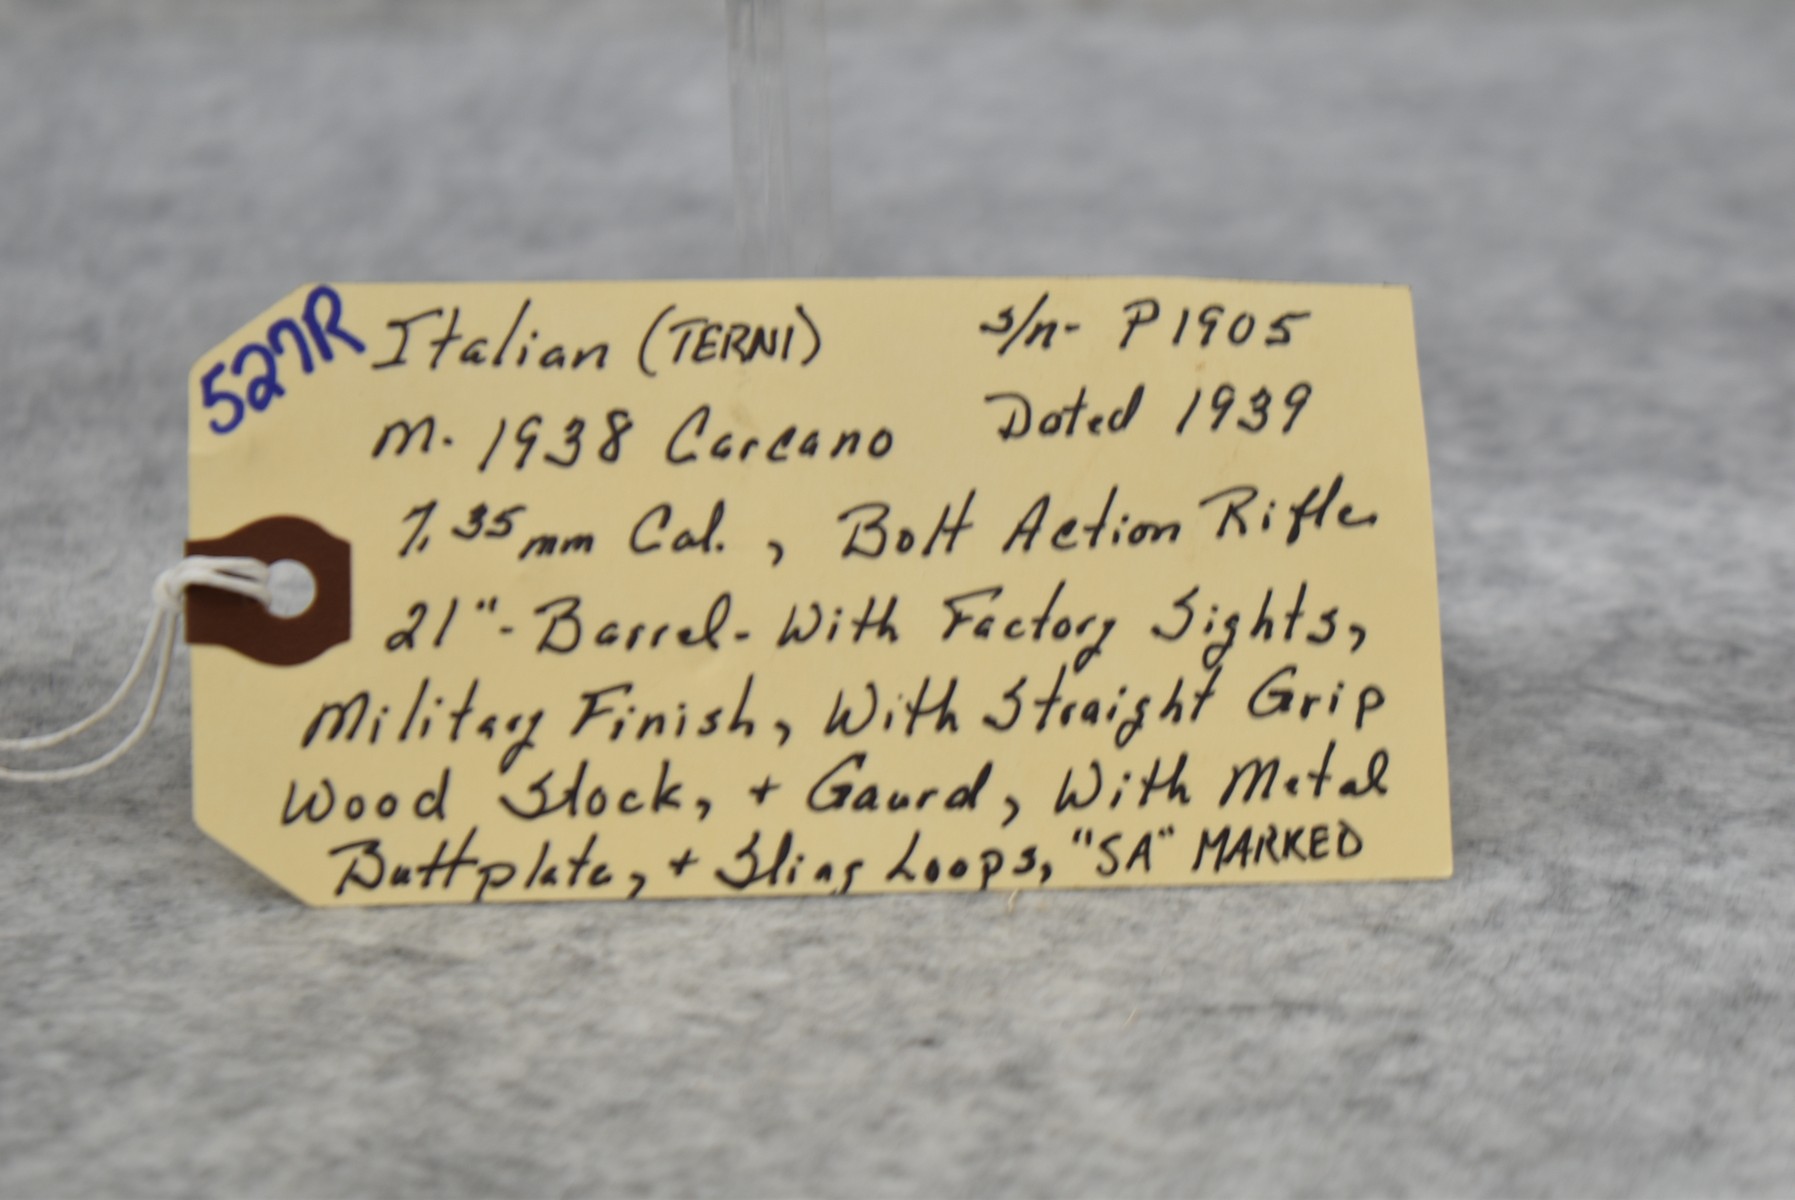 527R
Italian (TERNI) s/n- P1905
M. 1938 Carcano Dated 1939
7.35mm Cal., Bolt Action Rifle
21"- Barrel- With Factory Sights,
Military Finish, With Straight Grip
Wood Stock, + Gaurd, With Metal
Buttplate, + Sling Loops, "SA" MARKED